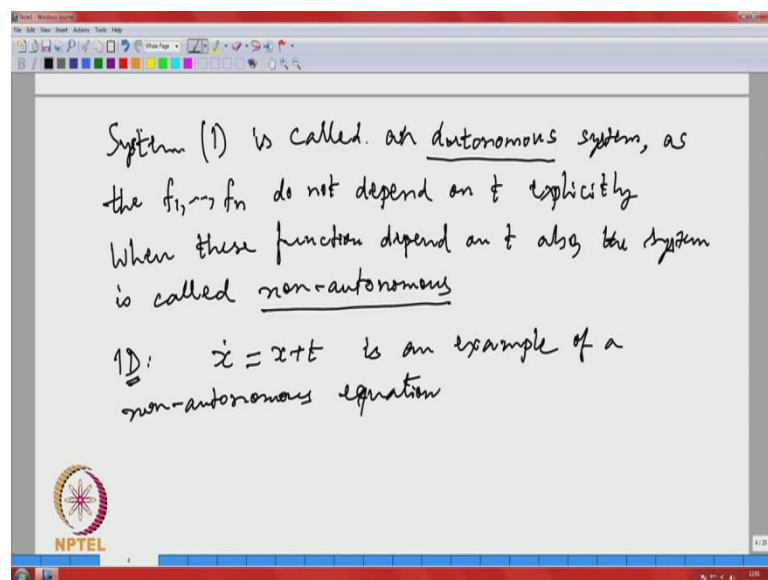 Note1 - Windows Journal
File Edit View Insert Actions Tools Help
Whole Page
B I
System (1) is called. an autonomous system, as
the f1, ..., fn do not depend on t explicitly
When these function depend on t also, the system
is called non-autonomous
1D: ẋ = x+t is an example of a
non-autonomous equation
NPTEL
4
4 / 25